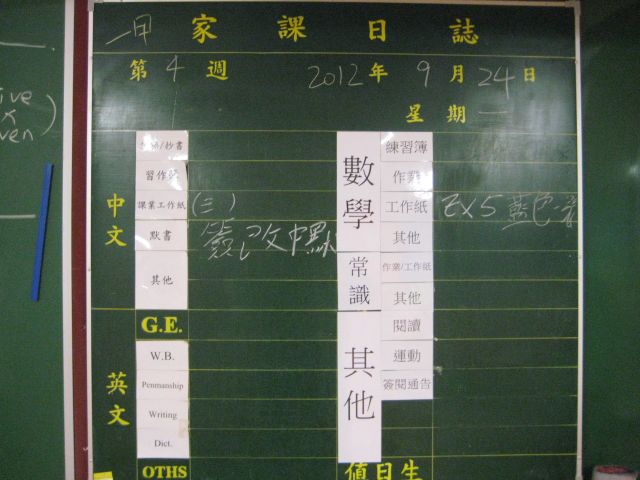 一甲 家課日誌
第 4 週 2012年 9月 24日
星期 一
中文
習作簿
課業工作紙 (三)
默書 簽改中默
其他
G.E.
英文
W.B.
Penmanship
Writing
Dict.
OTHS
數學
練習簿
作業
工作紙 EX5 藍色
其他
常識
作業/工作紙
其他
其他
閱讀
運動
簽閱通告
值日生
ive
ven)